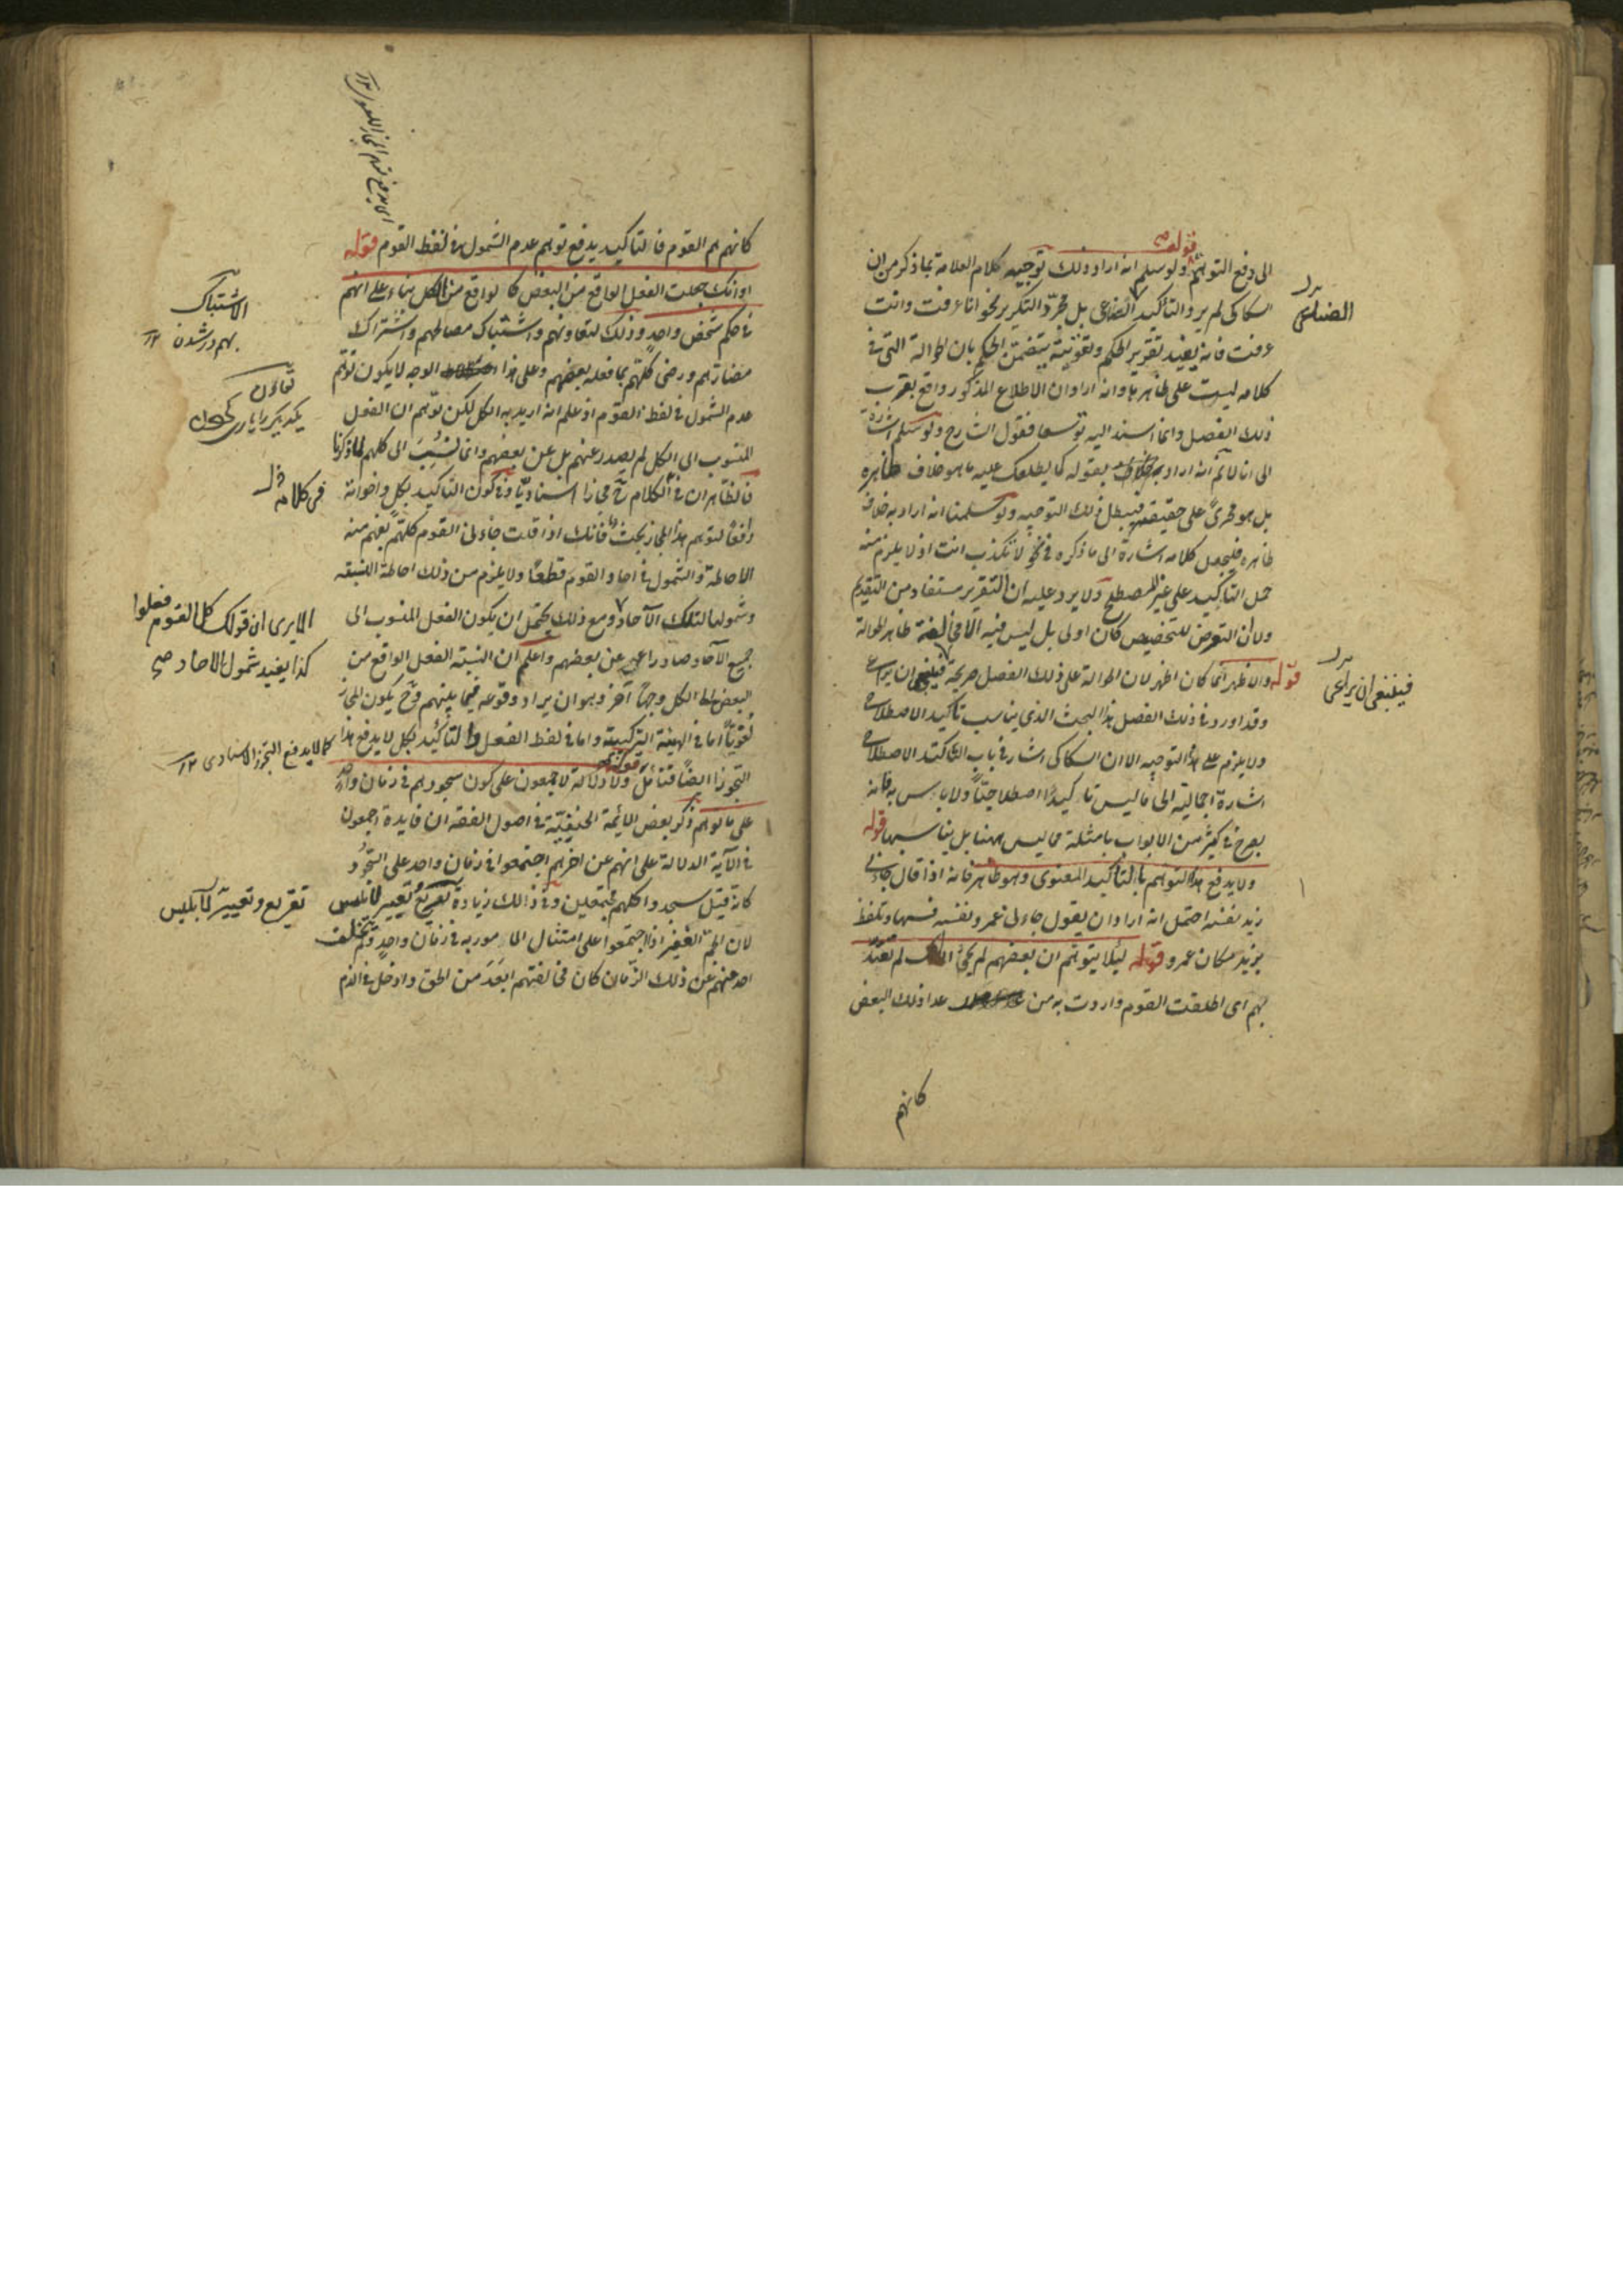 قوله صح
الى دفع التوهم ولو سلم انه اراد ذلك توجيه كلام العلامة بما ذكر من ان
السكاكى لم يرد التأكيد الصناعى بل مجرد التكرير نحو انا عرفت وانت
عرفت فانه يفيد تقرير الحكم وتقويته بتضمن الحكم بان الحوالة التى فى
كلامه ليست على ظاهرها وانه اراد ان الاطلاع المذكور واقع بقرب
ذلك الفصل وانما اسند اليه توسعا فقول الشارح ولو سلم اشارة
الى انا لا نم انه اراد بقوله كما يطلعك عليه ما هو خلاف ظاهره
بل هو مجرى على حقيقته فيبطل ذلك التوجيه ولو سلمنا انه اراد به خلاف
ظاهره فليجعل كلامه اشارة الى ما ذكره فى نحو لا تكذب انت اذ لا يلزم منه
حمل التأكيد على غير المصطلح ولا يرد عليه ان التقرير مستفاد من التقديم
ولان التعرض للتخصيص كان اولى بل ليس فيه الا مخالفة ظاهر الحوالة
قوله والاظهر انما كان اظهر لان الحوالة على ذلك الفصل صريحة فينبغى ان يراعى
وقد اورد فى ذلك الفصل هذا البحث الذى يناسب تأكيد الاصطلاحى
ولا يلزم على هذا التوجيه الا ان السكاكى اشار فى باب التأكيد الاصطلاحى
اشارة اجمالية الى ما ليس تاكيدا اصطلاحيا ولا باس به فانه
يصرح فى كثير من الابواب بامثلة مما ليس منها بل يناسبها قوله
ولا يدفع هذا التوهم بالتأكيد المعنوى وهو ظاهر فانه اذا قال جاءنى
زيد نفسه احتمل انه اراد ان يقول جاءنى عمرو نفسه فسها وتلفظ
بزيد مكان عمرو قوله ليلا يتوهم ان بعضهم لم يجئ الا انك لم تعتد
بهم اى اطلقت القوم واردت به من عدا ذلك البعض
كانهم
الصناعى
فينبغى ان يراعى
كانهم هم القوم فالتاكيد يدفع توهم عدم الشمول فى لفظ القوم قوله
او انك جعلت الفعل الواقع من البعض كالواقع من الكل بناء على انهم
فى حكم شخص واحد وذلك لتعاونهم واشتباك مصالحهم واشتراك
مضارهم ورضى كلهم بما فعله بعضهم وعلى هذا الوجه لا يكون توهم
عدم الشمول فى لفظ القوم اذ علم انه اريد به الكل لكن توهم ان الفعل
المنسوب الى الكل لم يصدر عنهم بل عن بعضهم وانما نسب الى كلهم لما ذكرنا
فالظاهر ان فى الكلام ح مجازا اسناديا وفى كون التاكيد بكل واخواته
دافعا لتوهم هذا المجاز بحث فانك اذا قلت جاءنى القوم كلهم يفهم منه
الاحاطة والشمول فى احاد القوم قطعا ولا يلزم من ذلك احاطة النسبة
وشمولها لتلك الآحاد ومع ذلك يحتمل ان يكون الفعل المنسوب الى
جميع الآحاد صادرا عن بعضهم واعلم ان النسبة الفعل الواقع من
البعض الى الكل وجها آخر وهو ان يراد وقوعه فيما بينهم وح يكون المجاز
لغويا اما فى الهيئة التركيبية واما فى لفظ الفعل والتأكيد بكل لا يدفع هذا
التجوز ايضا فتأمل قوله ولا دلالة لاجمعون على كون سجودهم فى زمان واحد
على ما توهم ذكر بعض الائمة الحنيفية فى اصول الفقه ان فايدة اجمعون
فى الآية الدلالة على انهم عن اخرهم اجتمعوا فى زمان واحد على السجود
كانه قيل سجدوا كلهم مجتمعين وفى ذلك زيادة تقريع وتعيير لابليس
لان الجم الغفير اذا اجتمعوا على امتثال المامور به فى زمان واحد ولم يتخلف
احد منهم عن ذلك الزمان كان مخالفتهم ابعد من الحق وادخل فى الذم
الاشتباك
بهم در شدن ١٢
تعاون
يكديكر را يارى
فى كلامه
الا يرى ان قولك كل القوم فعلوا
كذا يفيد شمول الاحاد صح
كما لا يدفع التجوز الاسنادى ١٢
تقريع وتعيير لابليس